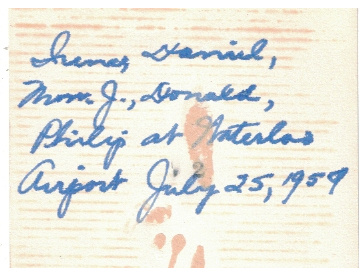 Irene, Daniel,
Mom. J., Donald,
Philip at Waterloo
Airport July 25, 1959